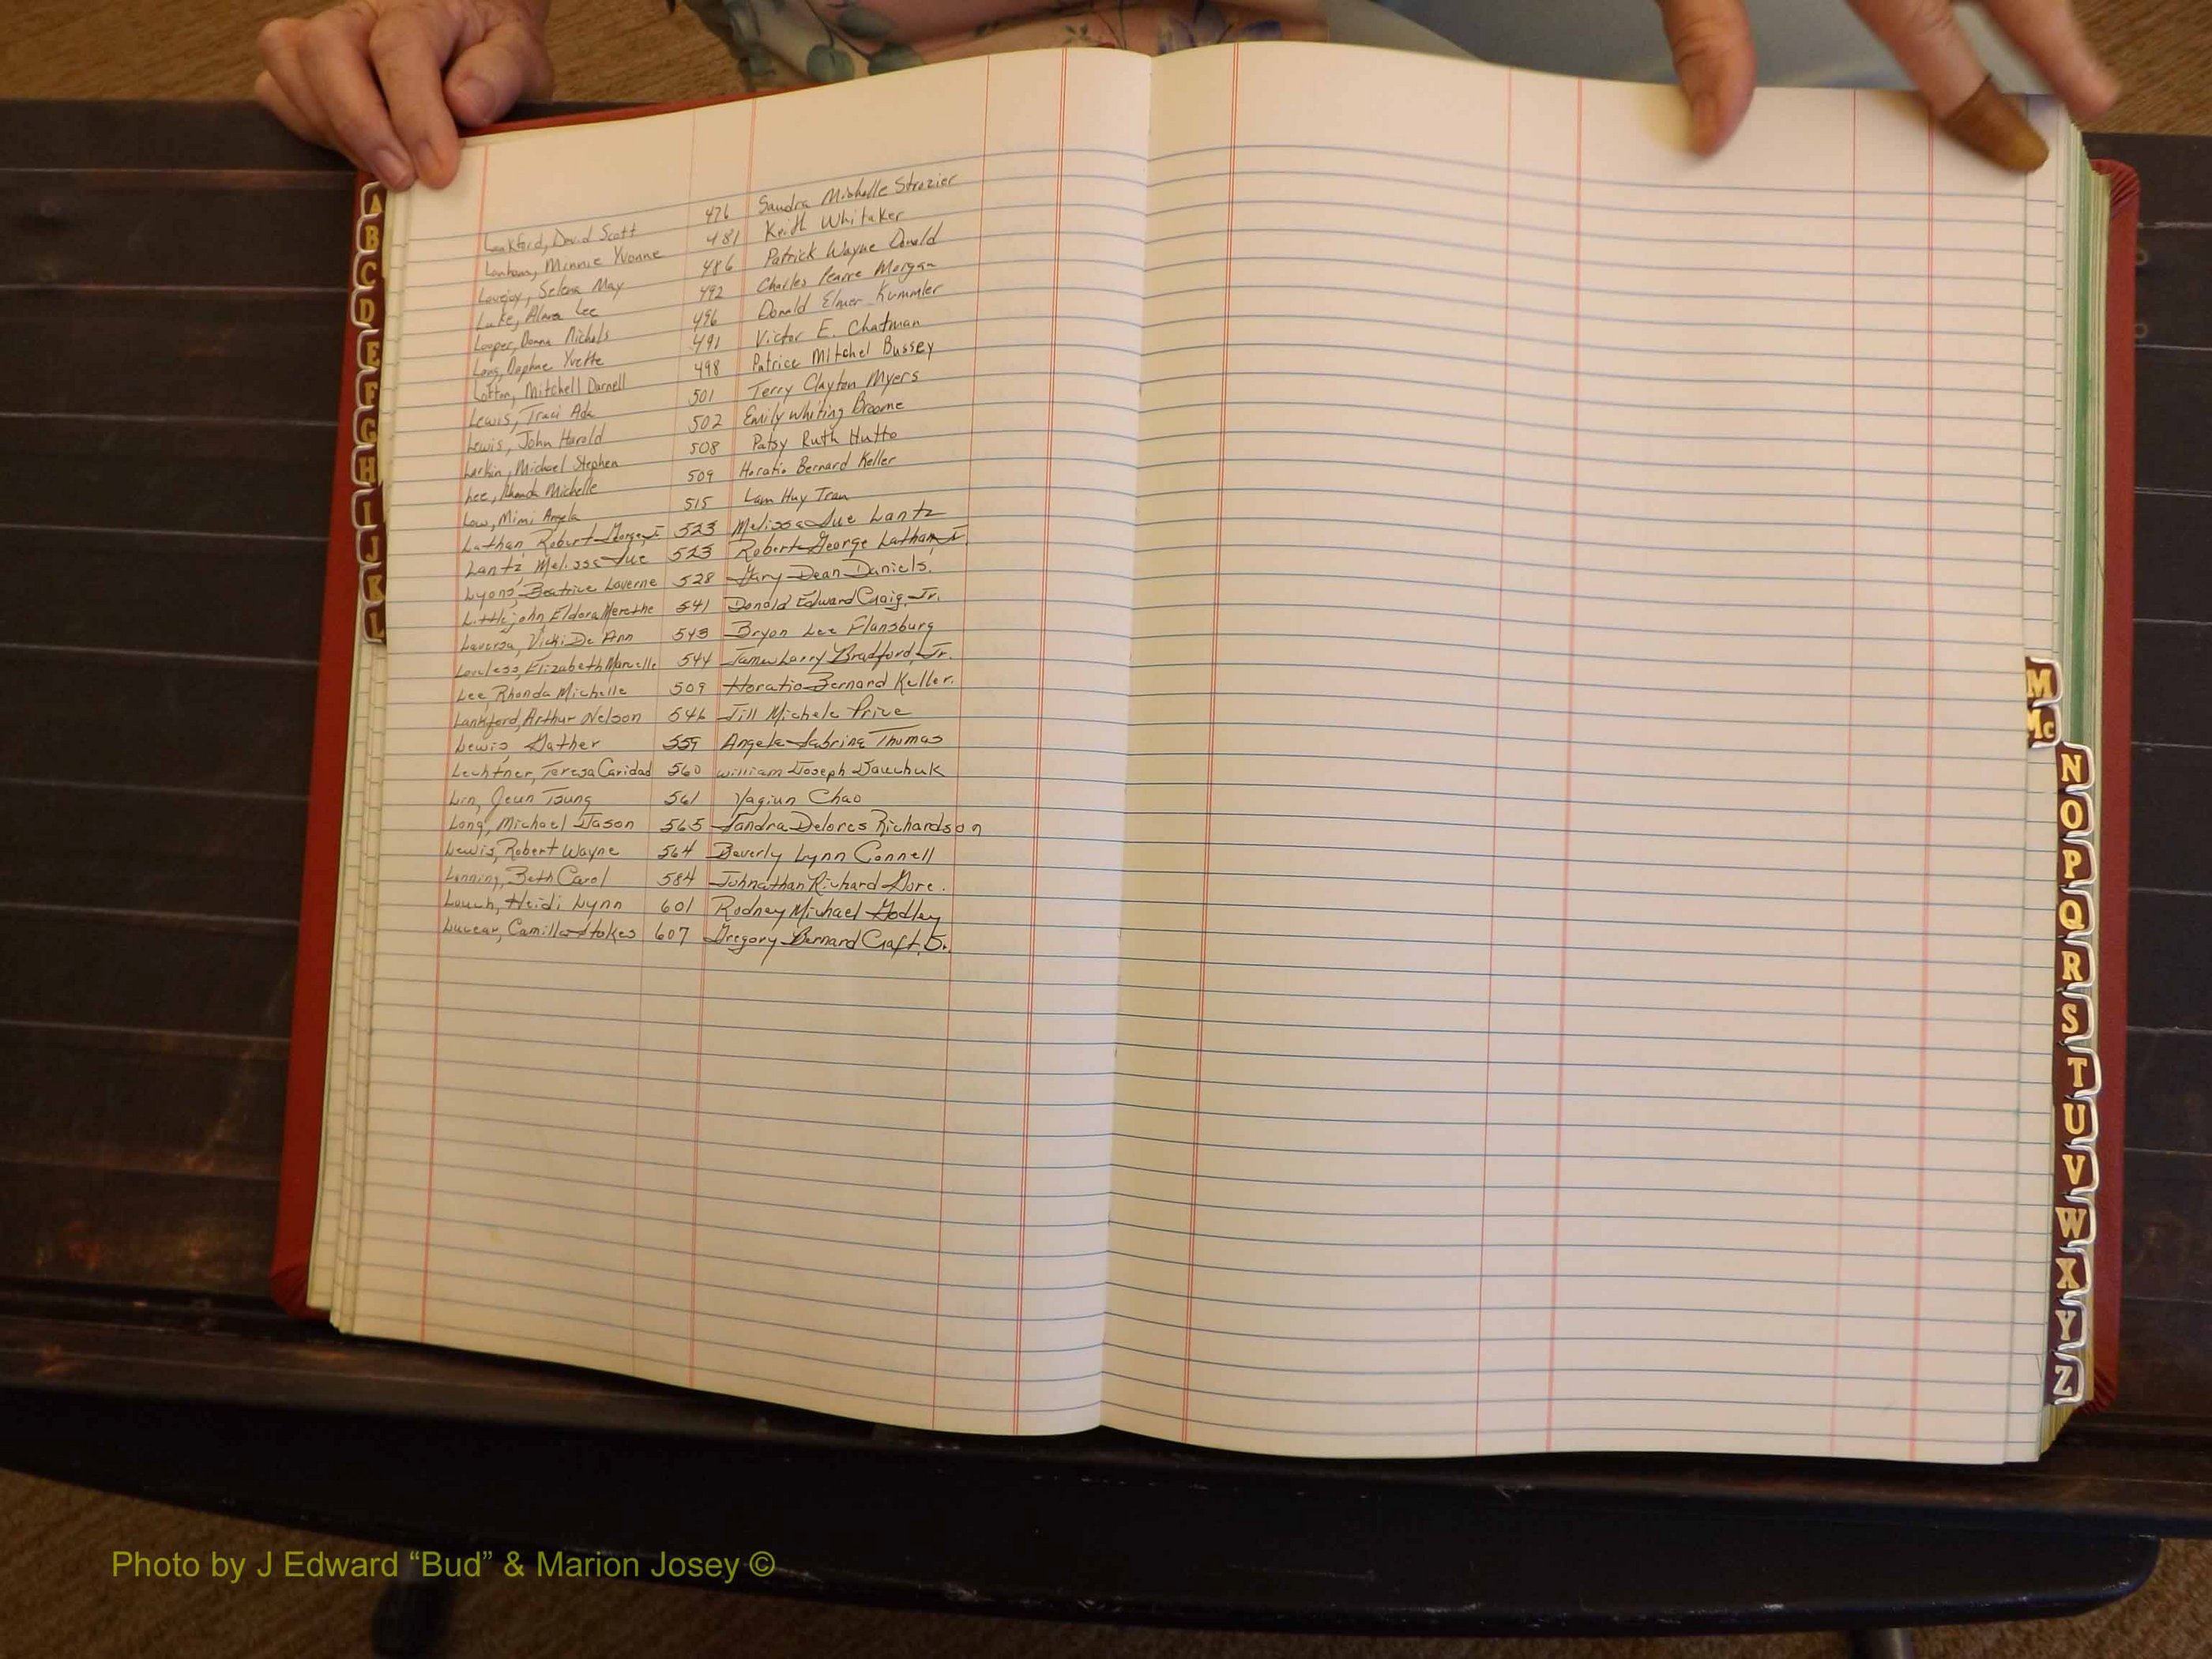 Lankford, David Scott 476 Sandra Michelle Strozier
Lanham, Minnie Yvonne 481 Keith Whitaker
Lovejoy, Selena May 486 Patrick Wayne Donald
Luke, Alma Lee 492 Charles Pearre Morgan
Looper, Donna Nichols 496 Donald Elmer Kummler
Long, Daphne Yvette 491 Victor E. Chatman
Lotton, Mitchell Darnell 498 Patrice Mitchel Bussey
Lewis, Traci Ada 501 Terry Clayton Myers
Lewis, John Harold 502 Emily Whiting Broome
Larkin, Michael Stephen 508 Patsy Ruth Hutto
Lee, Rhonda Michelle 509 Horatio Bernard Keller
Low, Mimi Angela 515 Lam Huy Tran
Lathan, Robert George, Jr 523 Melissa Sue Lantz
Lantz, Melissa Sue 523 Robert George Lathan, Jr.
Lyons, Beatrice Laverne 528 Gary Dean Daniels.
Littlejohn, Eldora Merethe 541 Donald Edward Craig, Jr.
Laversa, Vicki De Ann 543 Bryon Lee Flansburg
Loveless, Elizabeth Marcelle 544 James Larry Bradford, Jr.
Lee, Rhonda Michelle 509 Horatio Bernard Keller.
Lankford, Arthur Nelson 546 Jill Michele Price
Lewis, Gather 559 Angela Sabrina Thomas
Lechtner, Teresa Caridad 560 William Joseph Dauchuk
Lin, Jeun Tsung 561 Yagiun Chao
Long, Michael Jason 565 Sandra Delores Richardson
Lewis, Robert Wayne 564 Beverly Lynn Connell
Lanning, Beth Carol 584 Johnathan Richard Gore.
Louch, Heidi Lynn 601 Rodney Michael Godley
Lucear, Camilla Stokes 607 Gregory Bernard Craft, S.
A
B
C
D
E
F
G
H
I
J
K
L
M
Mc
N
O
P
Q
R
S
T
U
V
W
X
Y
Z
Photo by J Edward “Bud” & Marion Josey ©